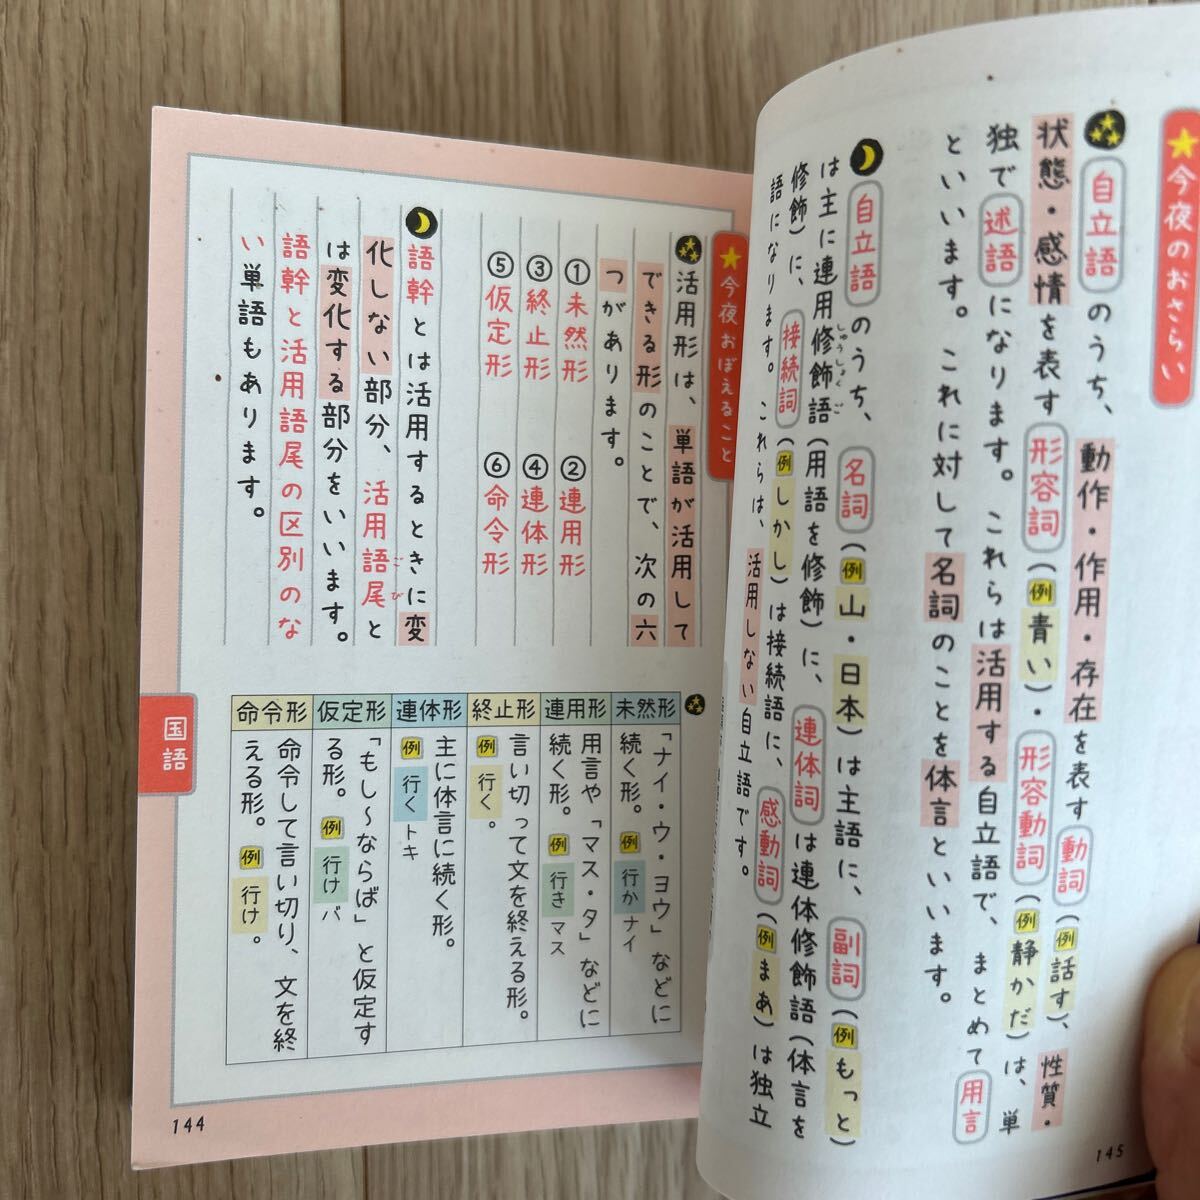 ★今夜のおさらい
自立語のうち、動作・作用・存在を表す動詞(例話す)、性質・
状態・感情を表す形容詞(例青い)・形容動詞(例静かだ)は、単
独で述語になります。これらは活用する自立語で、まとめて用言
といいます。これに対して名詞のことを体言といいます。
自立語のうち、名詞(例山・日本)は主語に、副詞(例もっと)
は主に連用修飾語(用語を修飾)に、連体詞は連体修飾語(体言を
しゅうしょくご
修飾)に、接続詞(例しかし)は接続語に、感動詞(例まあ)は独立
語になります。これらは、活用しない自立語です。
145
★今夜おぼえること
活用形は、単語が活用して
できる形のことで、次の六
つがあります。
①未然形 ②連用形
③終止形 ④連体形
⑤仮定形 ⑥命令形
語幹とは活用するときに変
化しない部分、活用語尾と
ごび
は変化する部分をいいます。
語幹と活用語尾の区別のな
い単語もあります。
未然形
「ナイ・ウ・ヨウ」などに
続く形。例 行かナイ
連用形
用言や「マス・タ」などに
続く形。例 行きマス
終止形
言い切って文を終える形。
例 行く。
連体形
主に体言に続く形。
例 行くトキ
仮定形
「もし〜ならば」と仮定す
る形。例 行けバ
命令形
命令して言い切り、文を終
える形。例 行け。
国語
144